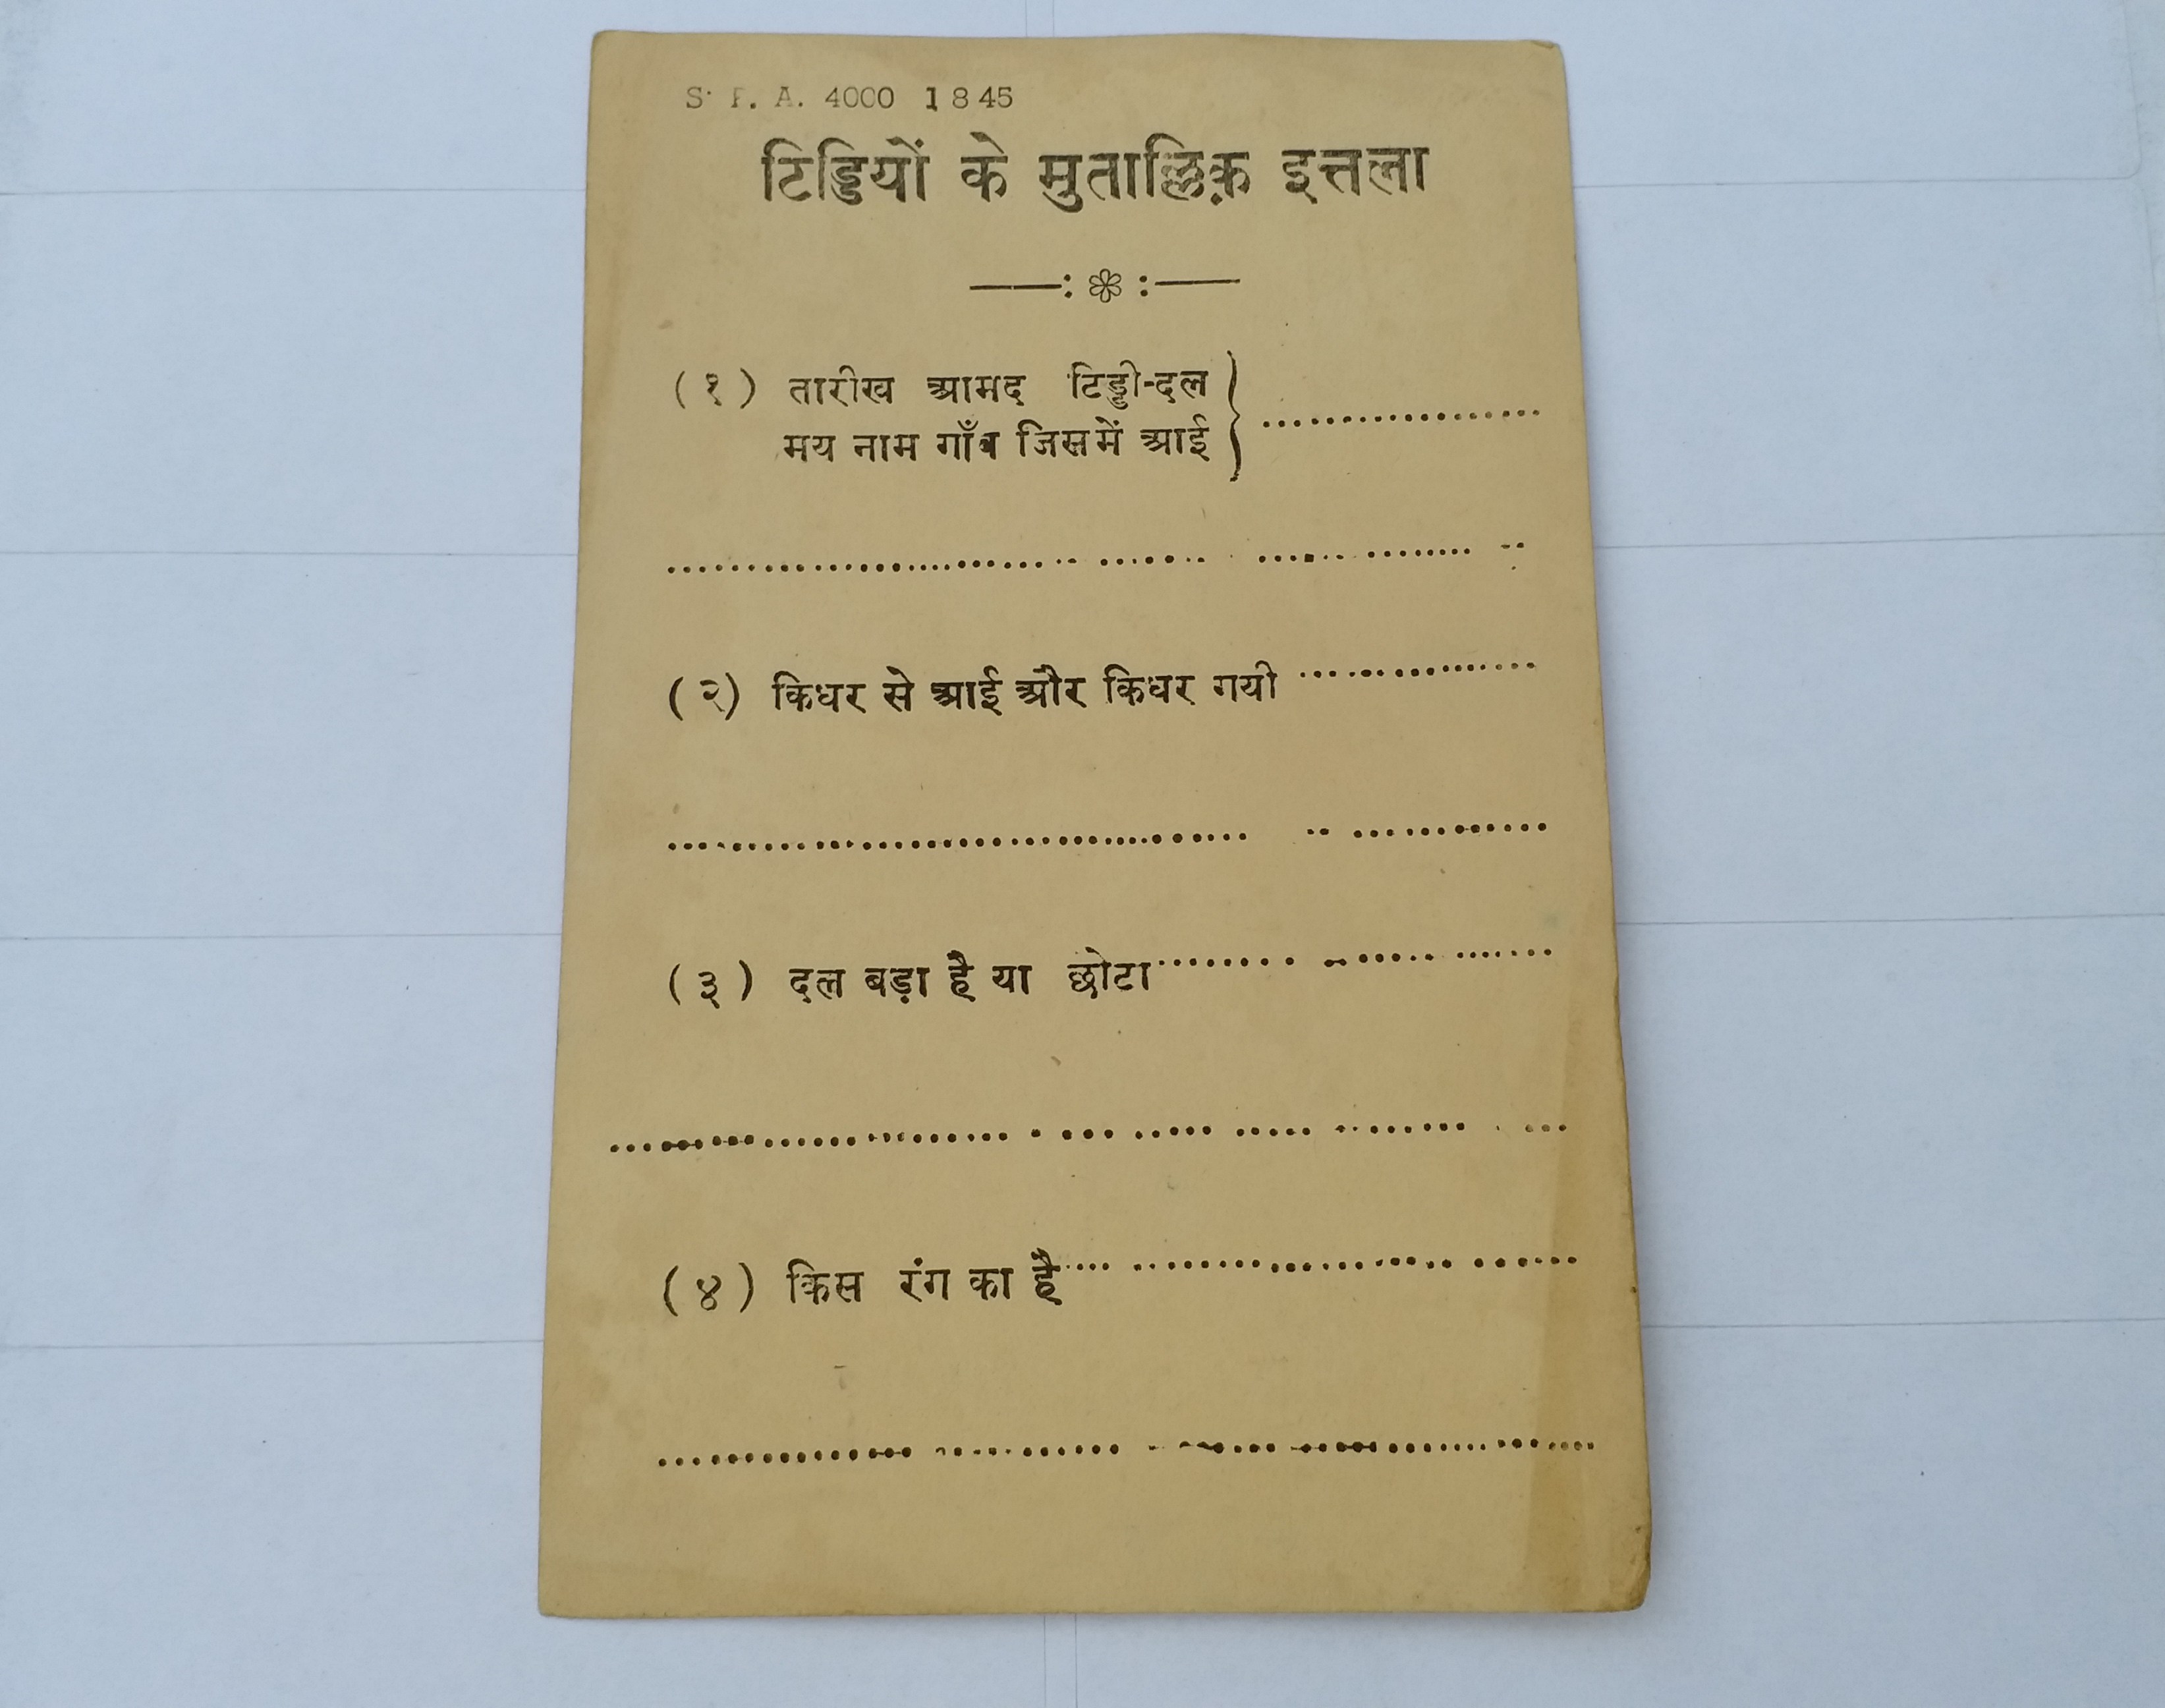 S. P. A. 4000 1845
टिड्डियों के मुताल्लिक़ इत्तला
——: ❀ :——
(१) तारीख आमद टिड्डी-दल
मय नाम गाँव जिसमें आई } ....................
........................................
(२) किधर से आई और किधर गयी ....................
........................................
(३) दल बड़ा है या छोटा ....................
........................................
(४) किस रंग का है ....................
........................................